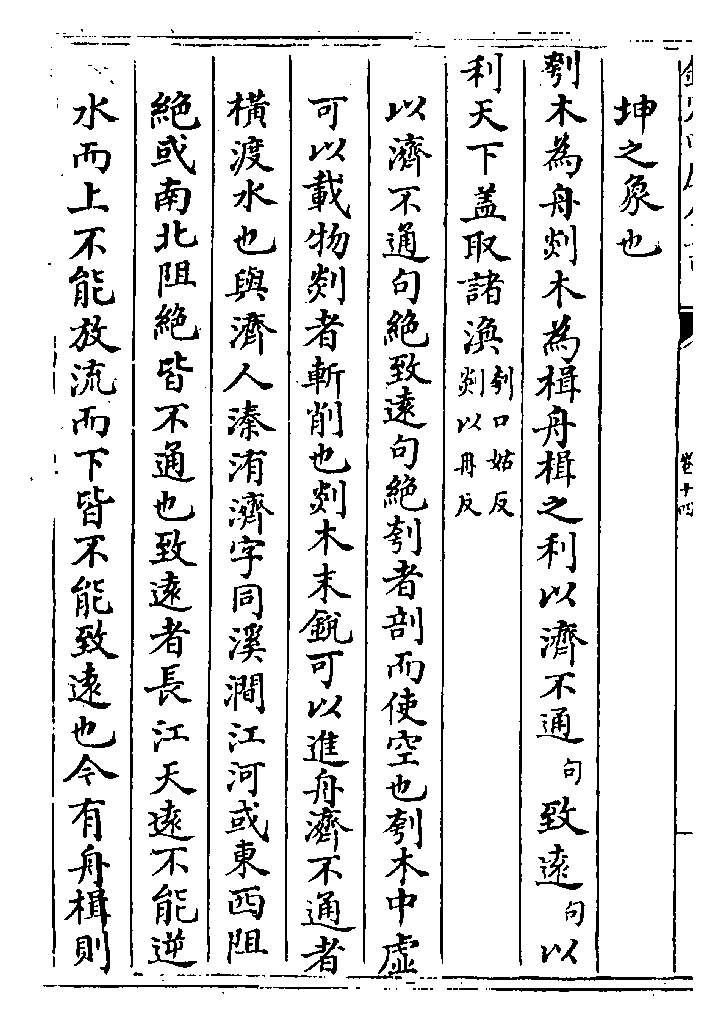 坤之象也
刳木為舟剡木為楫舟楫之利以濟不通句致遠句以
利天下蓋取諸渙刳口姑反剡以冉反
以濟不通句絶致遠句絶刳者剖而使空也刳木中虛
可以載物剡者斬削也剡木末銳可以進舟濟不通者
橫渡水也與濟人溱洧濟字同溪澗江河或東西阻
絶或南北阻絶皆不通也致遠者長江天遠不能逆
水而上不能放流而下皆不能致遠也今有舟楫則
卷十四